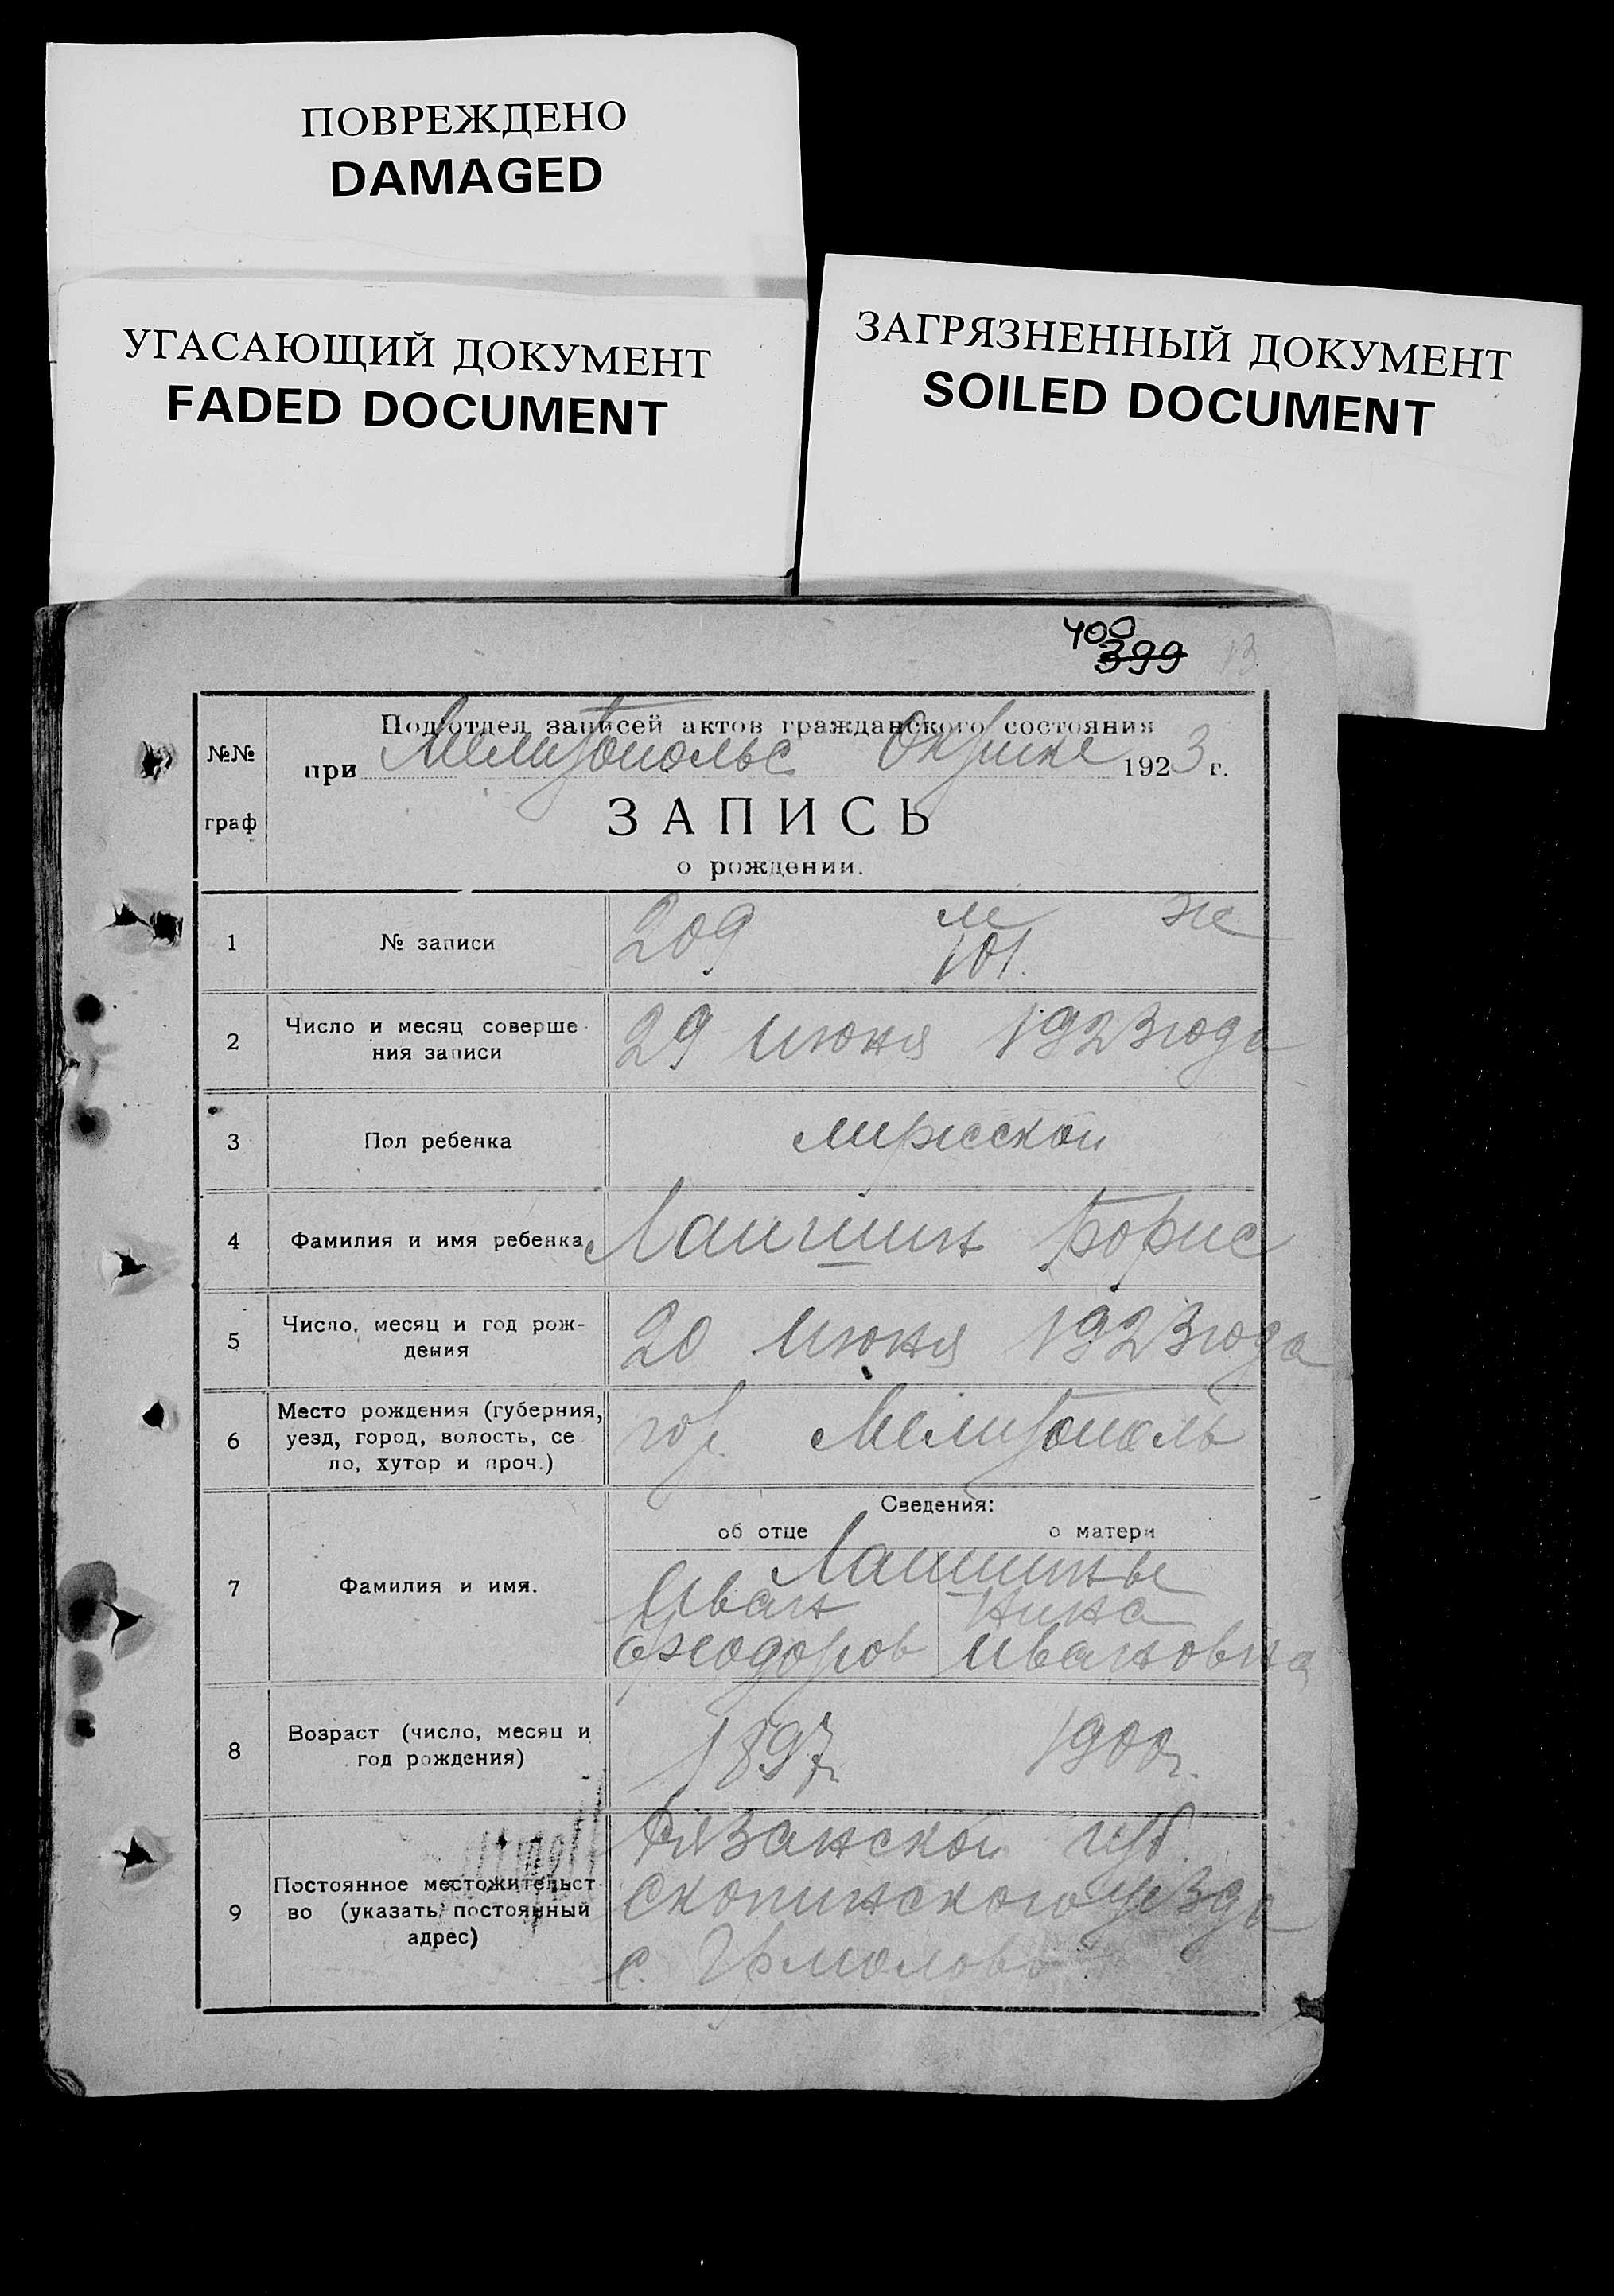 ПОВРЕЖДЕНО
DAMAGED
УГАСАЮЩИЙ ДОКУМЕНТ
FADED DOCUMENT
ЗАГРЯЗНЕННЫЙ ДОКУМЕНТ
SOILED DOCUMENT
400
399 13
№№ граф
Подотдел записей актов гражданского состояния
при Мелитопольс 1923 г.
ЗАПИСЬ
о рождении.
1 № записи 209 м ж
101.
2 Число и месяц соверше
ния записи 29 июня 1923 года
3 Пол ребенка мужской
4 Фамилия и имя ребенка Лапшин Борис
5 Число, месяц и год рож-
дения 20 июня 1923 года
6 Место рождения (губерния,
уезд, город, волость, се
ло, хутор и проч.) гор. Мелитополь
Сведения:
об отце о матери
7 Фамилия и имя. Лапшины
Иван Нина
Феодоров Ивановна
8 Возраст (число, месяц и
год рождения) 1897г. 1900г.
9 Постоянное местожительст
во (указать постоянный
адрес) Рязанской губ.
Скопинского уезда
с. Ермолово